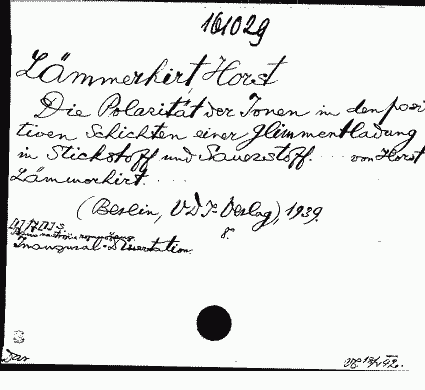 161029
Lämmerhirt, Horst
Die Polarität der Ionen in den posi
tiven Schichten einer Glimmentladung
in Stickstoff und Sauerstoff. von Horst
Lämmerhirt.
(Berlin, VDI-Verlag), 1939.
8°
Inaugural-Dissertation.